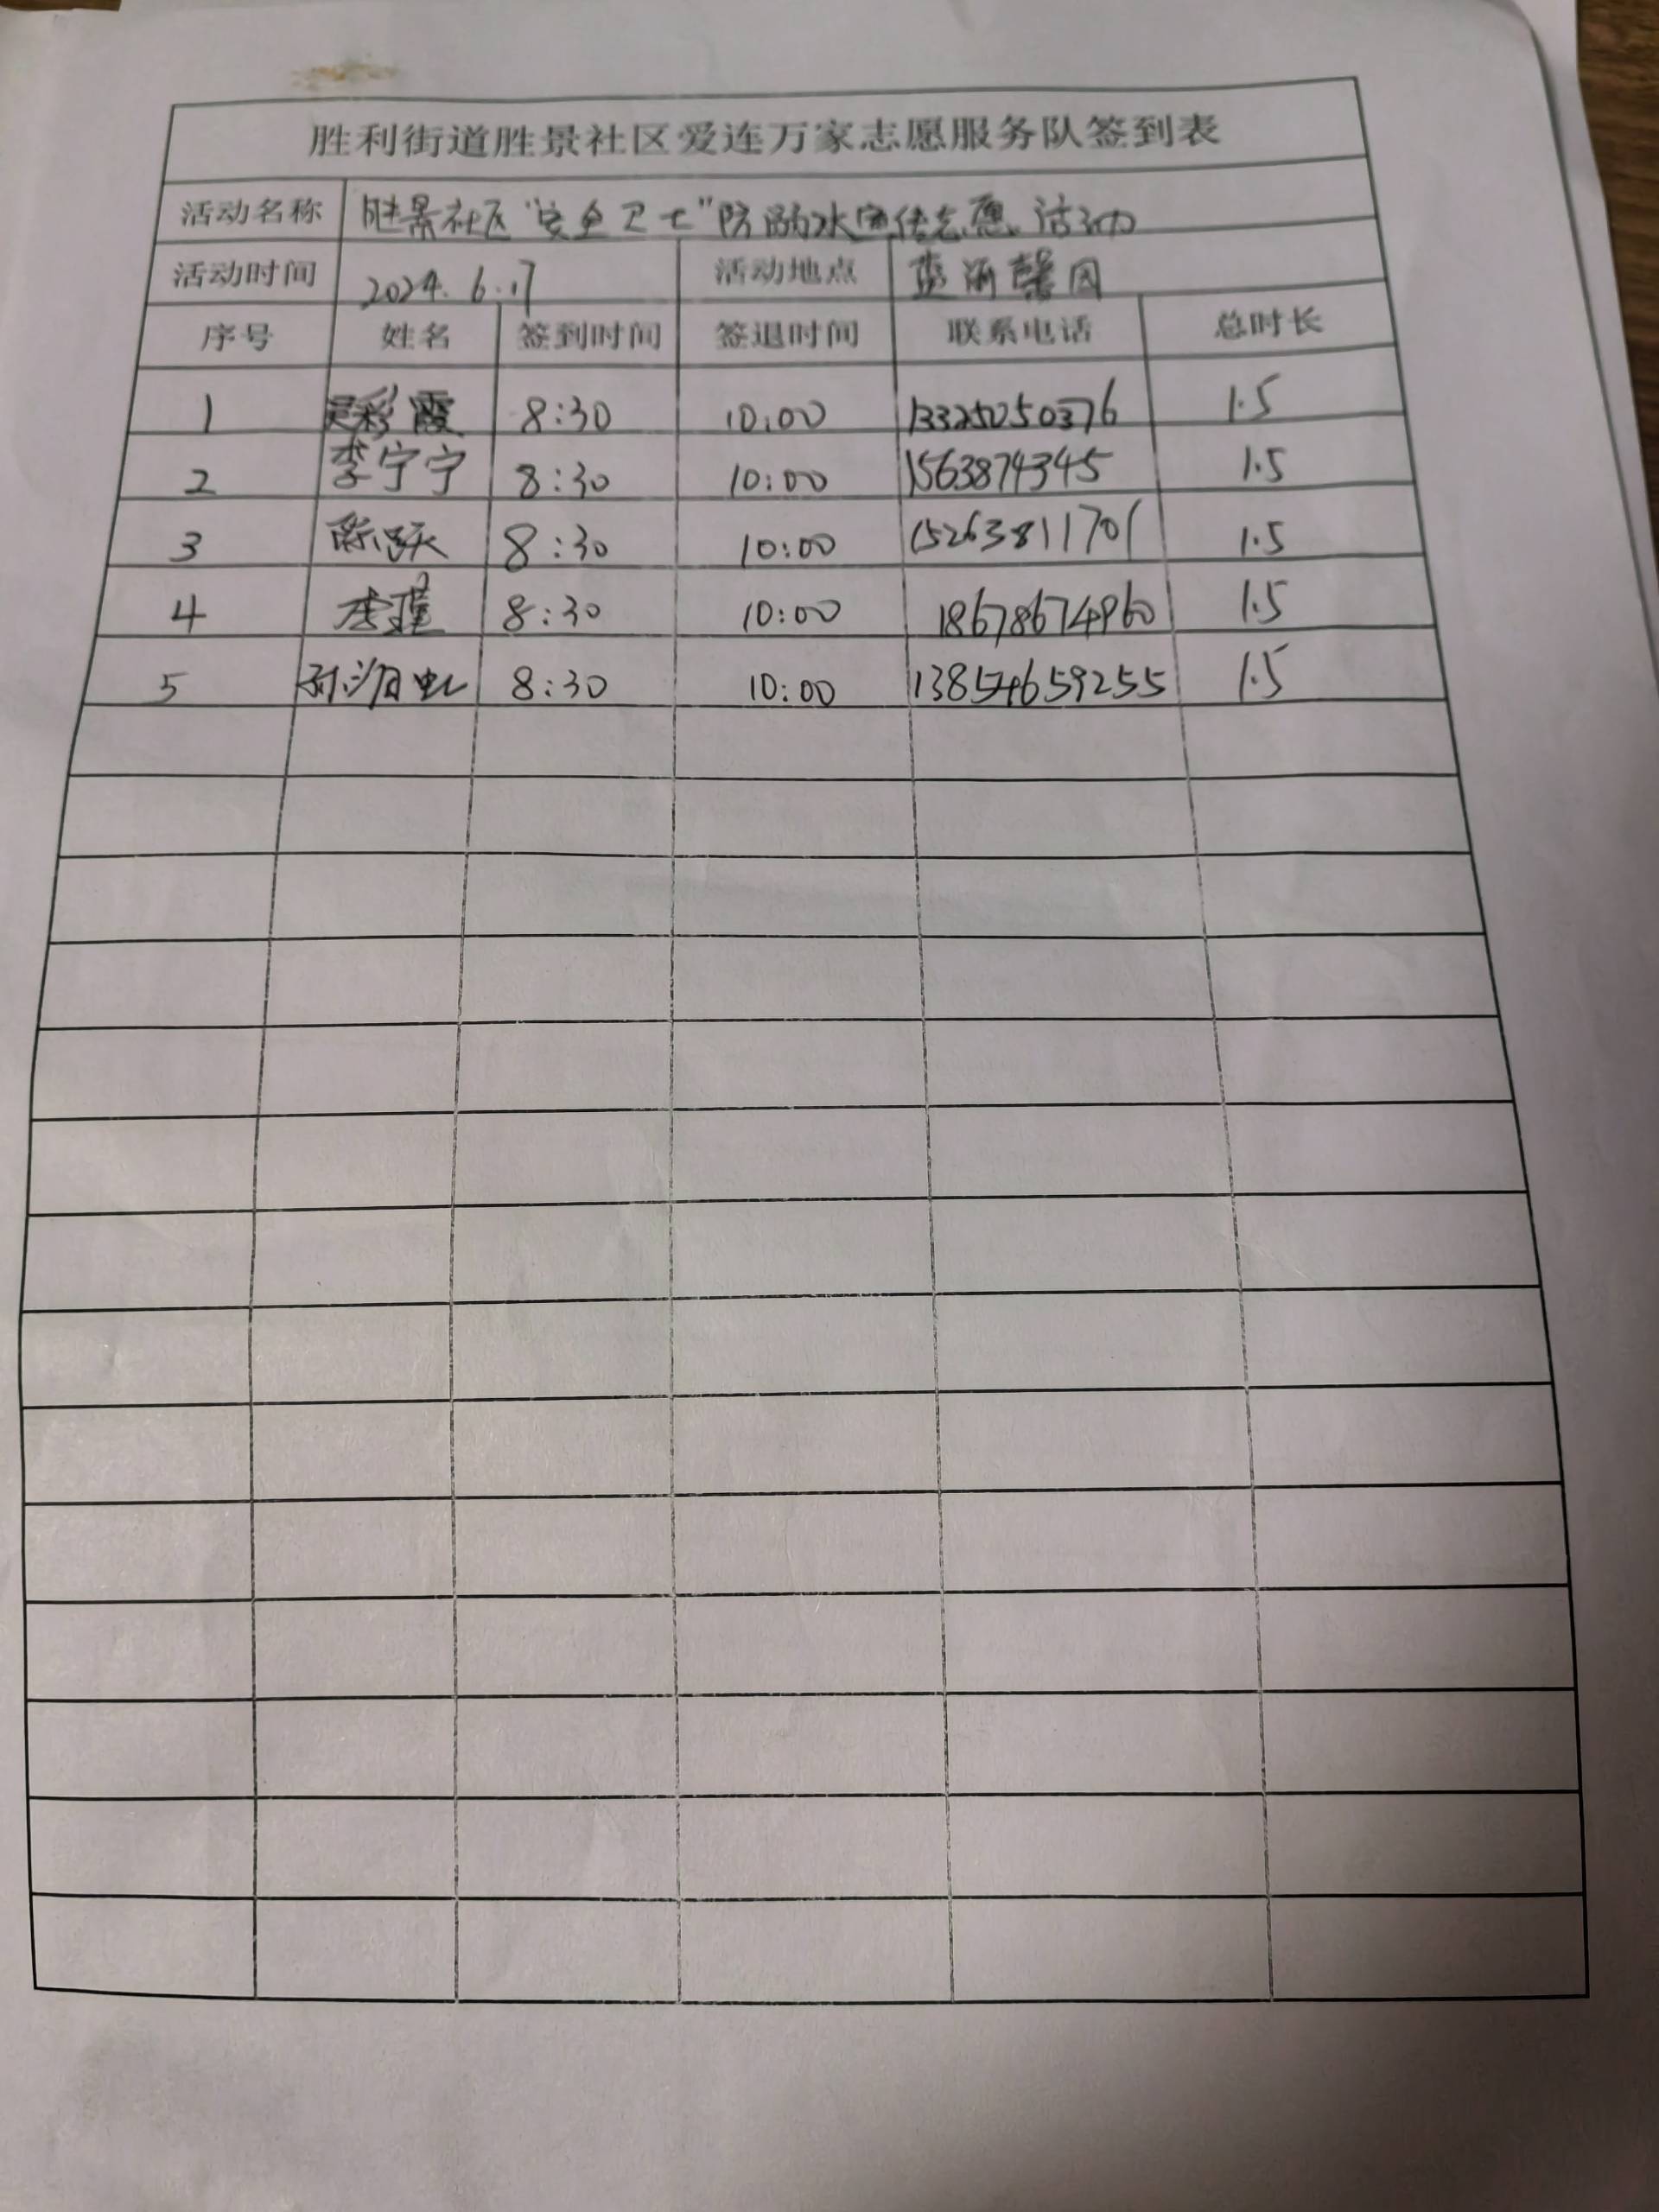 胜利街道胜景社区爱连万家志愿服务队签到表
活动名称 胜景社区“安全卫士”防溺水宣传志愿活动
活动时间 2024.6.17 活动地点 馨园
序号 姓名 签到时间 签退时间 联系电话 总时长
1 吴彩霞 8:30 10:00 13325050376 1.5
2 李宁宁 8:30 10:00 1563874345 1.5
3 8:30 10:00 15263811701 1.5
4 李瑾 8:30 10:00 18678674960 1.5
5 8:30 10:00 13854659255 1.5